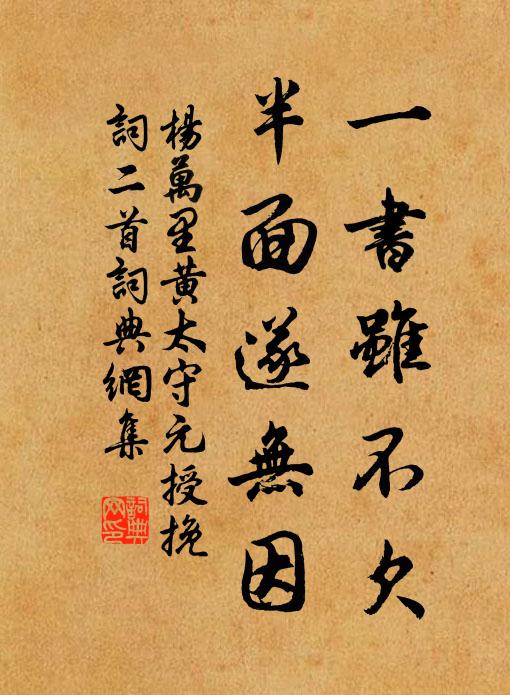 一書雖不欠
半面遂無因
楊萬里黃太守元授挽
詞二首詞典網集
詞典
网印